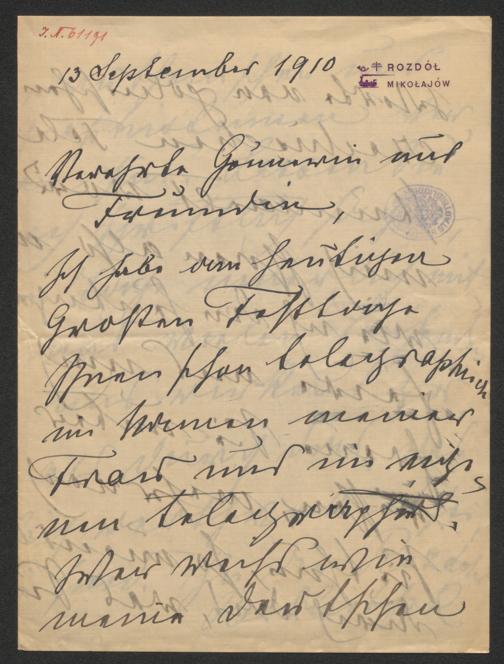 J.N. 61191
13 September 1910
ROZDÓŁ
MIKOŁAJÓW
Verehrte Gönnerin und
Freundin,
Ich habe am heutigen
Großen Festtage
Ihnen schon telegraphisch
im Namen meiner
Frau und im eige-
nen telegraphirt.
wie
meine Deutschen